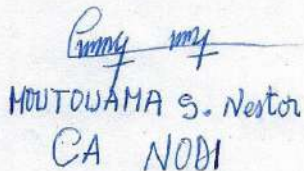 MOUTOUAMA S. Nestor
CA NODI